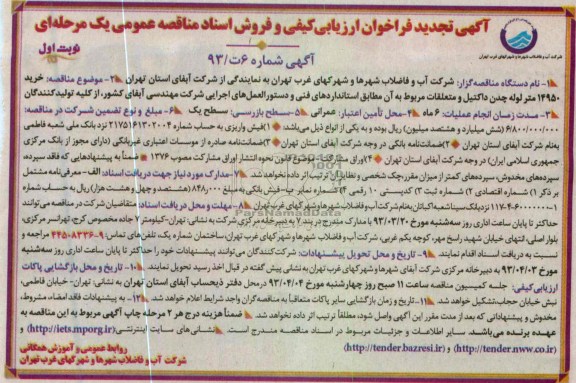 آگهی تجدید فراخوان ارزیابی کیفی و فروش اسناد مناقصه عمومی یک مرحله‌ای
نوبت اول
آگهی شماره ۶ت/۹۳
شرکت آب و فاضلاب شهرها و شهرکهای غرب تهران
۱- نام دستگاه مناقصه‌گزار: شرکت آب و فاضلاب شهرها و شهرکهای غرب تهران به نمایندگی از شرکت آبفای استان تهران ۲- موضوع مناقصه: خرید
۱۴۹۵۰ متر لوله چدن داکتیل و متعلقات مربوط به آن مطابق استانداردهای فنی و دستورالعمل‌های اجرایی شرکت مهندسی آبفای کشور، از کلیه تولیدکنندگان
۳- مدت زمان انجام عملیات: ۶ ماه ۴- محل تأمین اعتبار: عمرانی ۵- سطح بازرسی: سطح یک ۶- مبلغ و نوع تضمین شرکت در مناقصه:
۶/۸۰۰/۰۰۰/۰۰۰ (شش میلیارد و هشتصد میلیون) ریال بوده و به یکی از انواع ذیل می‌باشد: ۱) فیش واریزی به حساب شماره ۲۱۷۵۱۴۱۳۰۲۰۰۴ نزد بانک ملی شعبه فاطمی
به‌نام شرکت آبفای استان تهران ۲) ضمانت‌نامه بانکی در وجه شرکت آبفای استان تهران ۳) ضمانت‌نامه صادره از موسسات اعتباری غیربانکی (دارای مجوز از بانک مرکزی
جمهوری اسلامی ایران) در وجه شرکت آبفای استان تهران ۴) اوراق مشارکت موضوع قانون نحوه انتشار اوراق مشارکت مصوب ۱۳۷۶ * ضمناً به پیشنهادهایی که فاقد سپرده،
سپرده‌های مخدوش، سپرده‌های کمتر از میزان مقرر، چک شخصی و نظایر آن ترتیب اثر داده نخواهد شد. ۷- مدارک مورد نیاز جهت دریافت اسناد: الف- معرفی‌نامه مشتمل
بر ذکر ۱) شماره اقتصادی ۲) شماره ثبت ۳) کدپستی ۱۰ رقمی ۴) شماره نمابر ب- فیش بانکی به مبلغ ۸۴۸٫۰۰۰ (هشتصد و چهل و هشت هزار) ریال به حساب شماره
نزد بانک سینا شعبه اکباتان به‌نام شرکت آب و فاضلاب شهرها و شهرکهای غرب تهران ۸- مهلت و محل دریافت اسناد: متقاضیان شرکت در مناقصه می‌توانند
حداکثر تا پایان ساعت اداری روز سه‌شنبه مورخ ۹۳/۰۳/۲۰ با مدارک مندرج در بند ۷ به دبیرخانه مرکزی شرکت به نشانی: تهران- کیلومتر ۷ جاده مخصوص کرج، تهرانسر مرکزی
بلوار اصلی، انتهای خیابان شهید راسخ مهر، کوچه یکم غربی، شرکت آب و فاضلاب شهرها و شهرکهای غرب تهران، ساختمان شماره یک، تلفن‌های تماس: ۹-۴۴۵۰۸۳۳۶ مراجعه و
نسبت به دریافت اسناد اقدام نمایند. ۹- تاریخ و محل تحویل پیشنهادات: شرکت‌کنندگان می‌توانند پیشنهادات خود را حداکثر تا پایان ساعت اداری روز سه‌شنبه
مورخ ۹۳/۰۴/۰۳ به دبیرخانه مرکزی شرکت آبفای شهرها و شهرکهای غرب تهران به نشانی پیش گفته در قبال اخذ رسید تحویل نمایند. ۱۰- تاریخ و محل بازگشایی پاکات
ارزیابی کیفی: جلسه کمیسیون مناقصه ساعت ۱۱ صبح روز چهارشنبه مورخ ۹۳/۰۴/۰۴ در محل دفتر ذیحساب آبفای استان تهران به نشانی تهران- خیابان فاطمی،
نبش خیابان حجاب، تشکیل خواهد شد. ۱۱- تاریخ و زمان بازگشایی سایر پاکات متعاقباً به مناقصه‌گران واجد شرایط اعلام خواهد شد. ۱۲- به پیشنهادات فاقد امضاء، مشروط،
مخدوش و پیشنهاداتی که بعد از مدت مقرر این آگهی واصل شود، مطلقاً ترتیب اثر داده نخواهد شد. * ضمناً هزینه درج هر ۲ مرحله چاپ آگهی مربوط به این مناقصه به
عهده برنده می‌باشد. سایر اطلاعات و جزئیات مربوط در اسناد مناقصه مندرج است. نشانی‌های سایت اینترنتی: (http://iets.mporg.ir) و
(http://tender.nww.co.ir) و (http://tender.bazresi.ir)
روابط عمومی و آموزش همگانی
شرکت آب و فاضلاب شهرها و شهرکهای غرب تهران
ParsNamadData